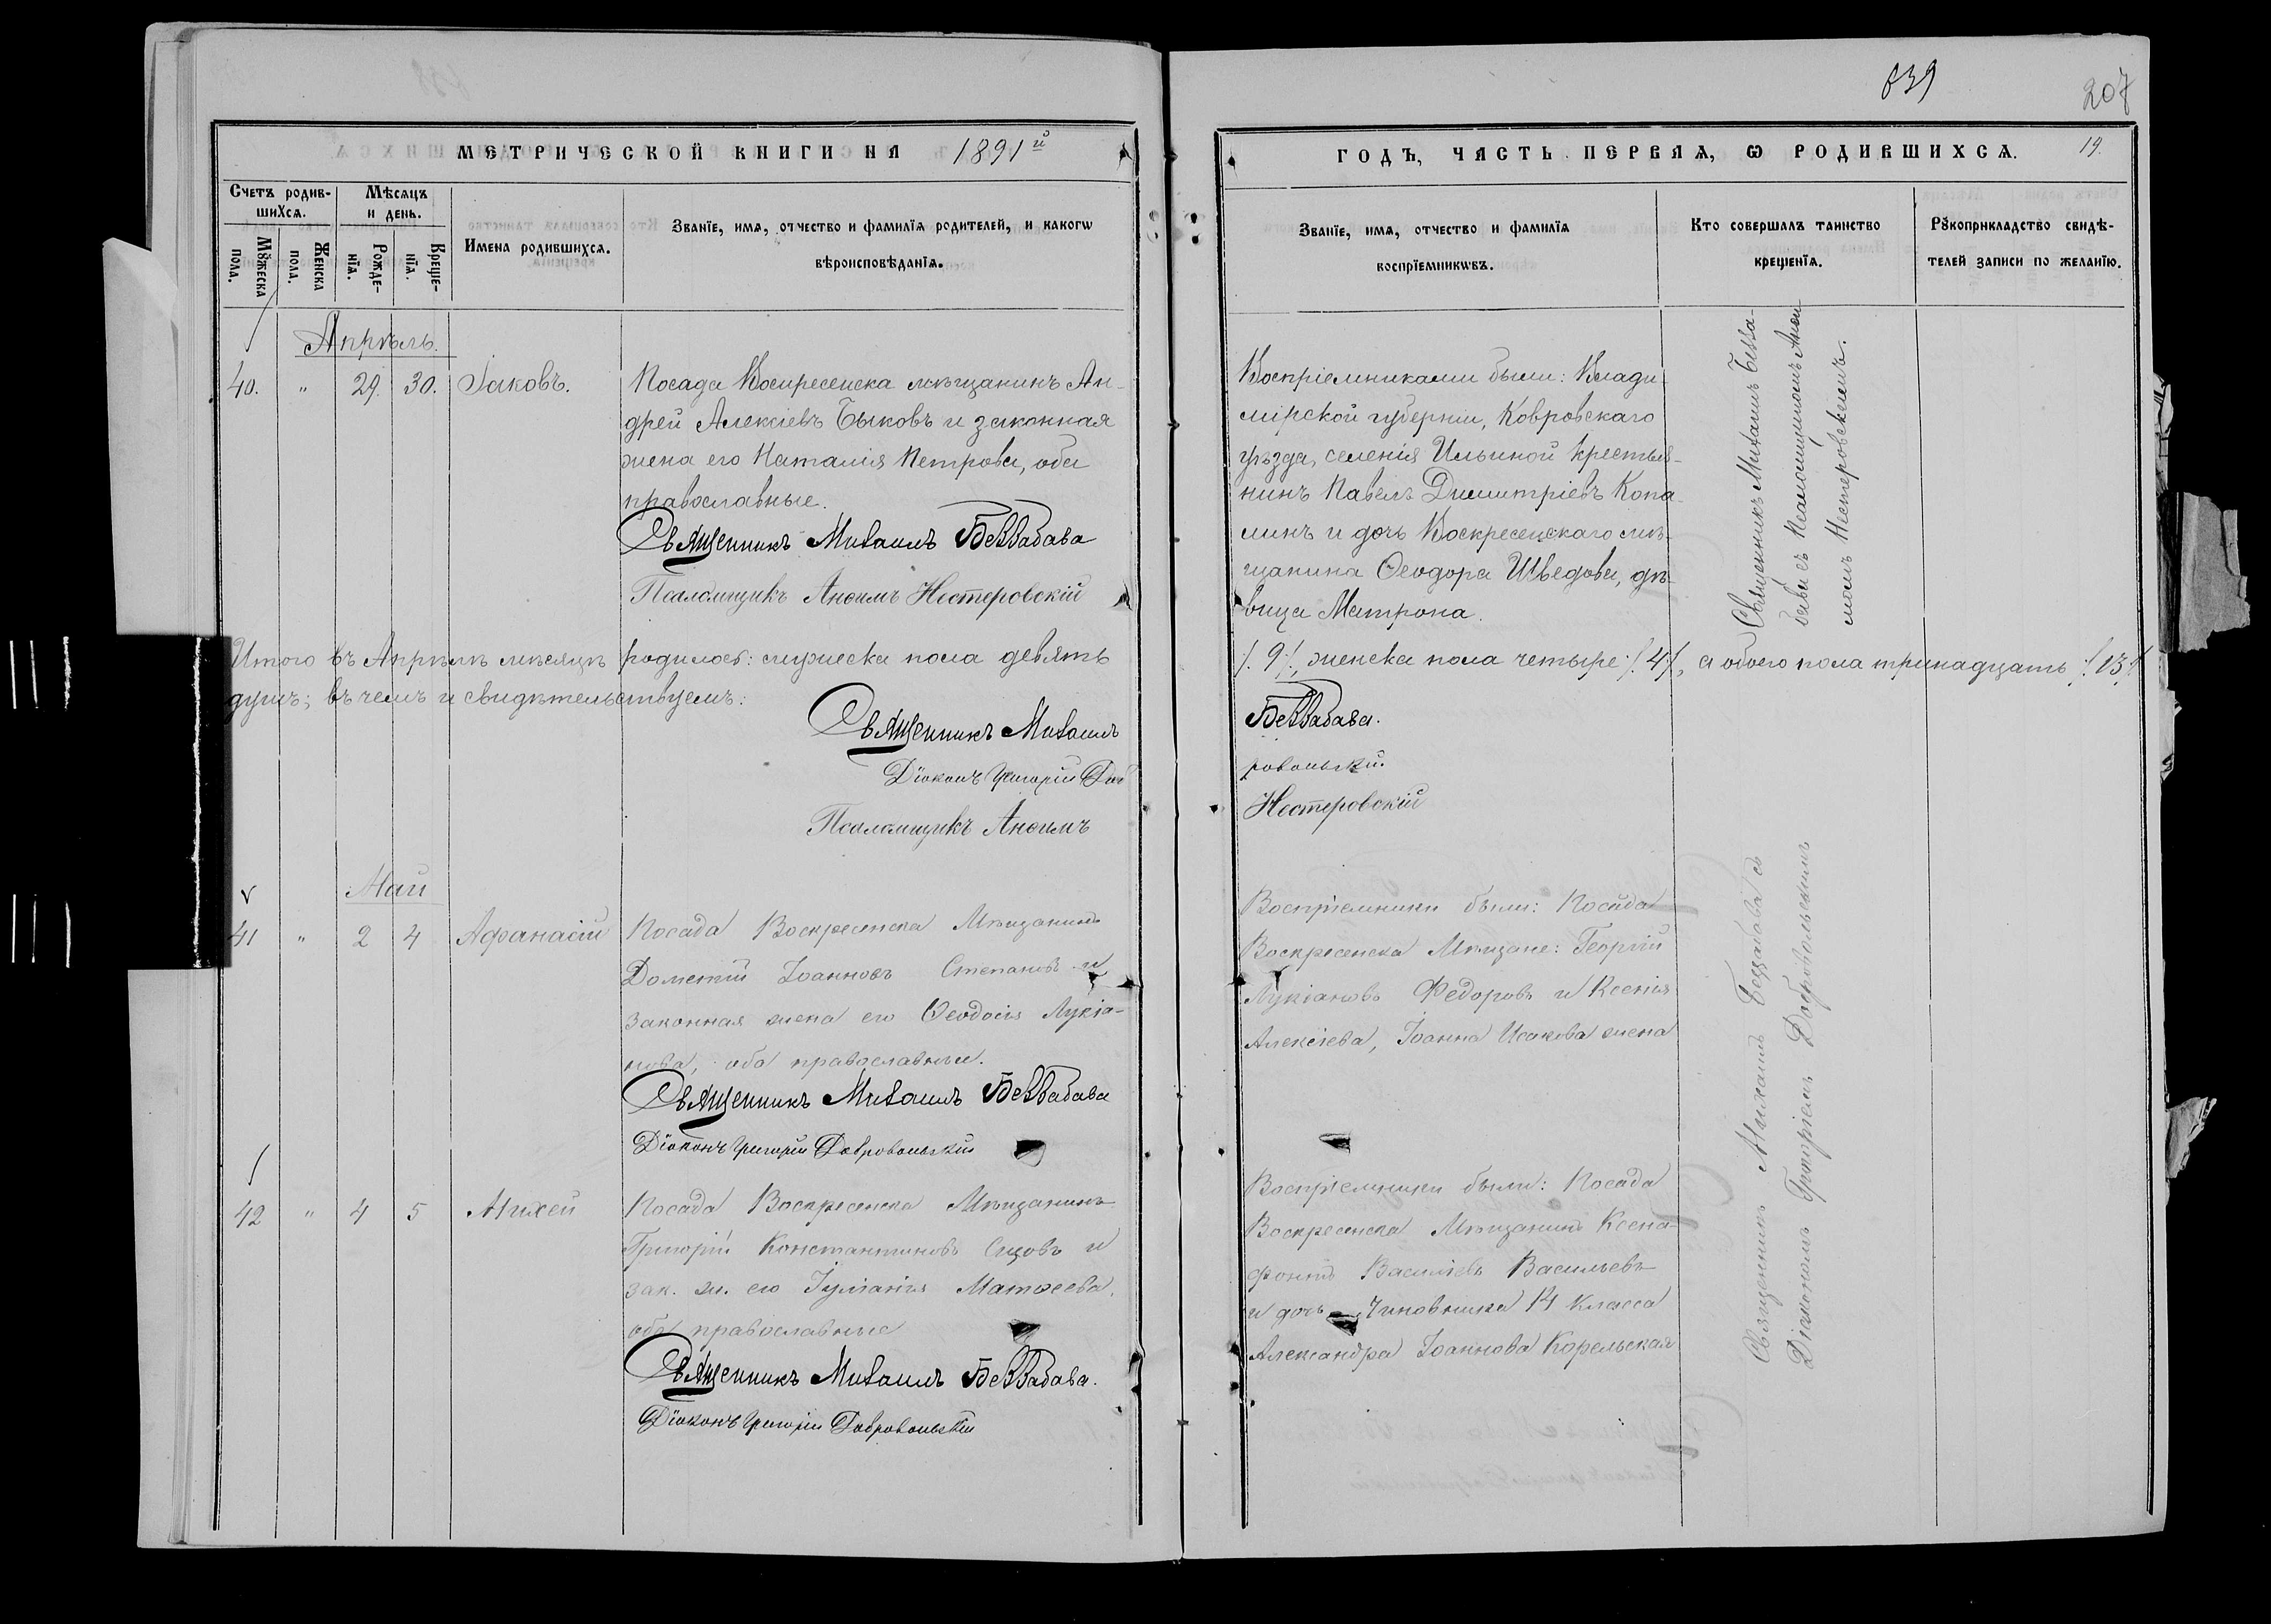 839
207
МЕТРИЧЕСКОЙ КНИГИ НА 1891й
ГОДЪ, ЧАСТЬ ПЕРВАЯ, Ѡ РОДИВШИХСѦ. 19.
Счетъ родив-
шихсѧ.
Мѣсѧцъ
и день.
Мꙋжеска
пола.
Женска
пола.
Рожде-
нїѧ.
Креще-
нїѧ.
Имена родившихсѧ.
Званїе, имѧ, отчество и фамилїѧ родителей, и какогѡ
вѣроисповѣданїѧ.
Званїе, имѧ, отчество и фамилїѧ
воспрїемникѡвъ.
Кто совершалъ таинство
крещенїѧ.
Рꙋкоприкладство свидѣ-
телей записи по желанїю.
Апрѣль.
40. " 29. 30. Іаковъ.
Посада Воскресенска мѣщанинъ Ан-
дрей Алексіевъ Быковъ и законная
жена его Наталія Петрова, оба
православные.
Священникъ Михаилъ Беззабава
Псаломщикъ Анѳимъ Нестеровскій
Воспріемниками были: Влади-
мірской губерніи, Ковровскаго
уѣзда, селенія Ильиной крестья-
нинъ Павелъ Димитріевъ Копа-
линъ и дочь Воскресенскаго мѣ-
щанина Ѳеодора Шведова, дѣ-
вица Матрона.
Священникъ Михаилъ Безза-
бава съ Псаломщикомъ Анѳи-
момъ Нестеровскимъ.
Итого въ Апрѣлѣ мѣсяцѣ родилось: мужеска пола девять /.9./, женска пола четыре /.4./, а обоего пола тринадцать /.13./
душъ; въ чемъ и свидѣтельствуемъ:
Священникъ Михаилъ Беззабава.
Діаконъ Григорій Доб ровольскій.
Псаломщикъ Анѳимъ Нестеровскій
Май
41 " 2 4 Афанасій
Посада Воскресенска Мѣщанинъ
Дометій Іоанновъ Степановъ и
законная жена его Ѳеодосія Лукіа-
нова, оба православные.
Священникъ Михаилъ Беззабава
Діаконъ Григорій Добровольскій
Воспріемники были: Посада
Воскресенска Мѣщане: Георгій
Лукіановъ Федоровъ и Ксенія
Алексіева, Іоанна Исакова жена
Священникъ Михаилъ Беззабава съ
Діакономъ Григоріемъ Добровольскимъ
42 " 4 5 Михей
Посада Воскресенска Мѣщанинъ
Григорій Константиновъ Сизовъ и
зак. ж. его Іуліанія Матѳеева,
оба православные
Священникъ Михаилъ Беззабава.
Діаконъ Григорій Добровольскій
Воспріемники были: Посада
Воскресенска Мѣщанинъ Ксено-
фонтъ Василіевъ Васильевъ
и дочь Чиновника 14 класса
Александра Іоаннова Корельская